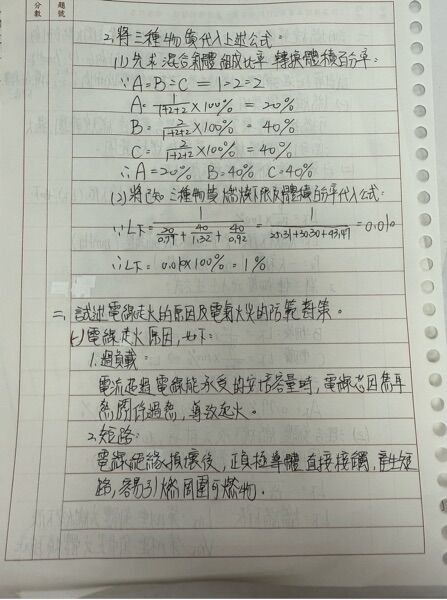 分數 題號
2.將三種物質代入上述公式：
(1)先求混合氣體組成比率，轉換體積百分率：
∵A=B=C=1=2=2
A= 1/1+2+2 ×100% = 20%
B= 2/1+2+2 ×100% = 40%
C= 2/1+2+2 ×100% = 40%
∴A=20% B=40% C=40%
(2)將已知三種物質燃燒下限及體積百分率代入公式：
∵L下= 1/(20/0.79 + 40/1.32 + 40/0.92) = 1/(25.31+30.30+43.47) = 0.010
∴L下= 0.010×100% = 1%
二、試述電線走火的原因及電氣火災的防範對策。
(一)電線走火原因，如下：
1.過負載：
電流超過電線能承受的安培容量時，電線會因焦耳
熱關係過熱，導致起火。
2.短路：
電線絕緣損壞後，正負極導體直接接觸，產生短
路，容易引燃周圍可燃物。